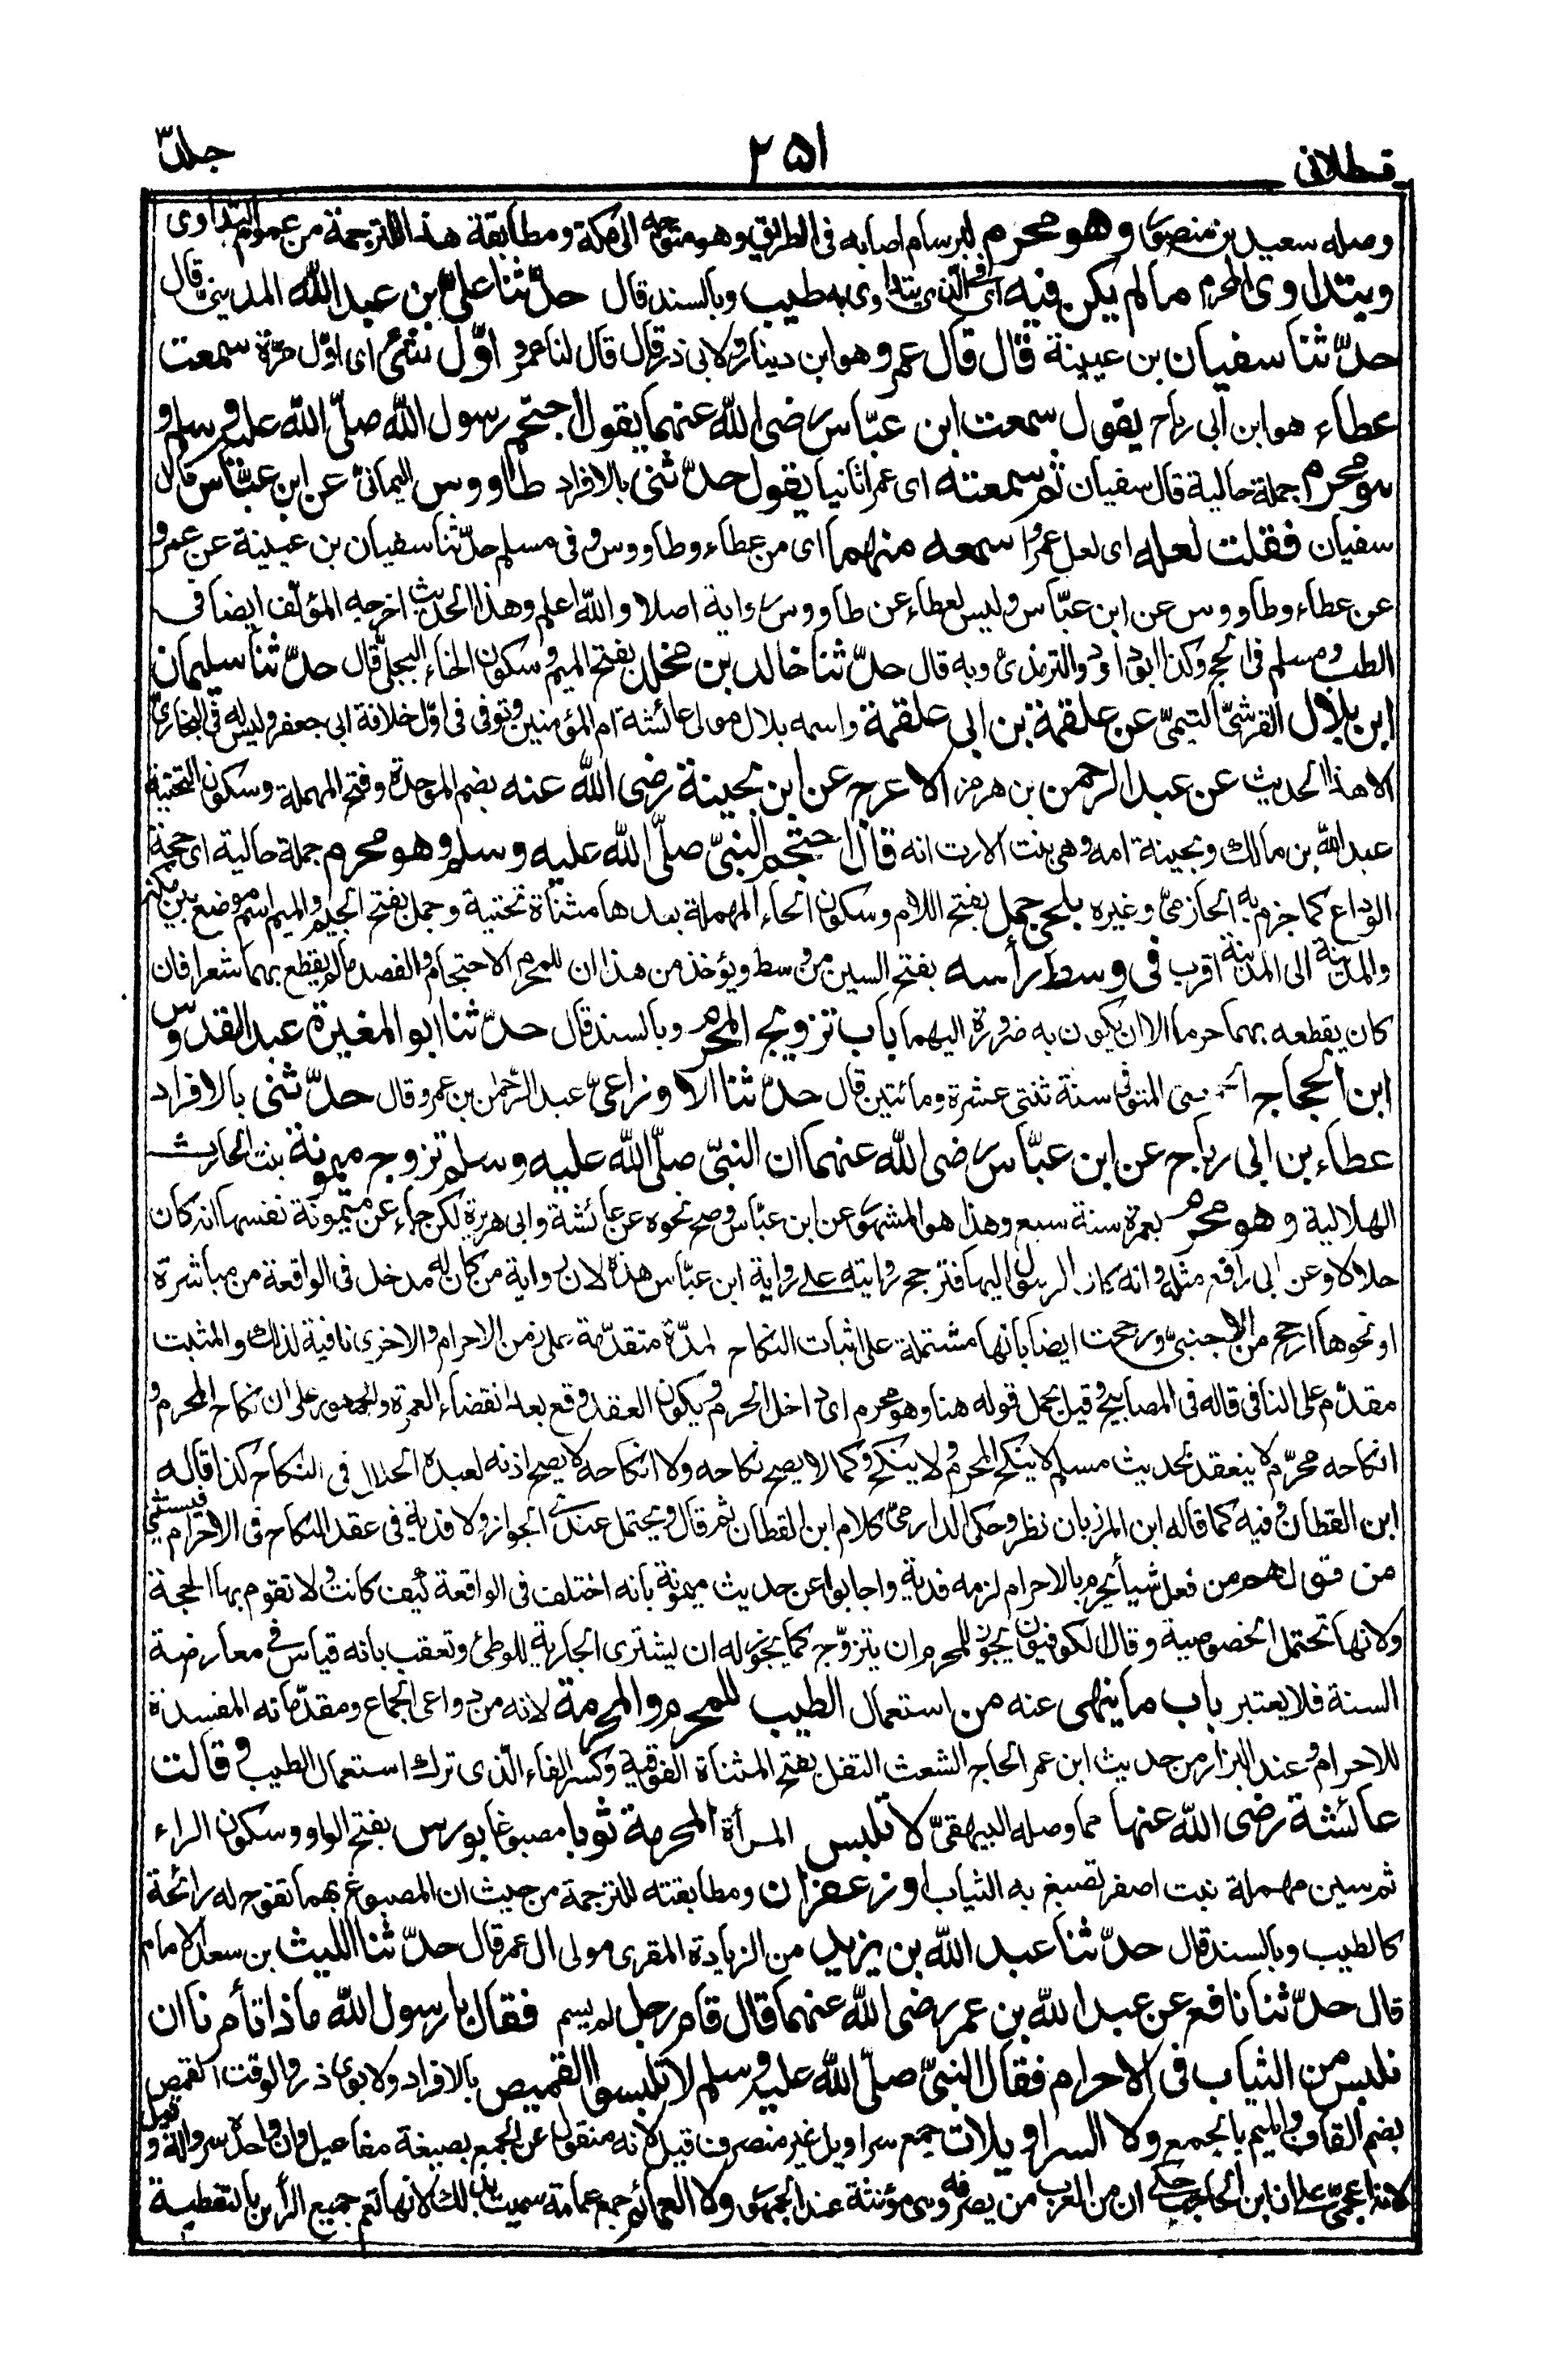 قسطلانی ٢٥١ جلد٣
وصله سعيد بن منصور وهو محرم لبرسام اصابه فى الطريق وهو متوجه الى مكة ومطابقة هذا للترجمة من عموم التداوى
ويتداوى المحرم ما لم يكن فيه اى فى الذى يتداوى به طيب وبالسند قال حدّثنا علىّ بن عبد الله المدينىّ قال
حدّثنا سفيان بن عيينة قال قال عمرو هو ابن دينار ولابى ذر قال قال لنا عمرو اوّل شئ اى اوّل مرّة سمعت
عطاء هو ابن ابى رباح يقول سمعت ابن عبّاس رضى الله عنهما يقول احتجم رسول الله صلّى الله عليه وسلم و
هو محرم جملة حالية قال سفيان ثم سمعته اى عمرا ثانيا يقول حدّثنى بالافراد طاووس اليمانىّ عن ابن عبّاس قال
سفيان فقلت لعله اى لعل عمرًا سمعه منهما اى من عطاء وطاووس وفى مسلم حدّثنا سفيان بن عيينة عن عمرو
عن عطاء وطاووس عن ابن عبّاس وليس لعطاء عن طاووس رواية اصلا والله اعلم وهذا الحديث اخرجه المؤلّف ايضا فى
الطب ومسلم فى الحج وكذا ابو داود والترمذىّ وبه قال حدّثنا خالد بن مخلد بفتح الميم وسكون الخاء البجلىّ قال حدّثنا سليمان
ابن بلال القرشىّ التيمىّ عن علقمة بن ابى علقمة واسمه بلال مولى عائشة ام المؤمنين وتوفى فى اوّل خلافة ابى جعفر وليس له فى البخارىّ
الا هذا الحديث عن عبد الرحمن بن هرمز الاعرج عن ابن بحينة رضى الله عنه بضم الموحدة وفتح المهملة وسكون التحتية
عبد الله بن مالك وبحينة امه وهى بنت الارت انه قال احتجم النبىّ صلّى الله عليه وسلم وهو محرم جملة حالية اى حجة
الوداع كما جزم به الحازمىّ وغيره بلحى جمل بفتح اللام وسكون الحاء المهملة بعدها مثناة تحتية وجمل بفتح الجيم والميم اسم موضع بين مكة
والمدينة الى المدينة اقرب فى وسط رأسه بفتح السين من وسط ويؤخذ من هذا ان للمحرم الاحتجام والفصد ما لم يقطع بهما شعرا فان
كان يقطعه بهما حرما الا ان يكون به ضرورة اليهما باب تزويج المحرم وبالسند قال حدّثنا ابو المغيرة عبد القدوس
ابن الحجاج الحمصى المتوفى سنة ثنتى عشرة ومائتين قال حدّثنا الاوزاعىّ عبد الرّحمٰن بن عمرو قال حدّثنى بالافراد
عطاء بن ابى رباح عن ابن عبّاس رضى الله عنهما ان النبىّ صلّى الله عليه وسلم تزوج ميمونة بنت الحارث
الهلالية وهو محرم بعمرة سنة سبع وهذا هو المشهور عن ابن عبّاس وصح نحوه عن عائشة وابى هريرة لكن جاء عن ميمونة نفسها انه كان
حلالا وعن ابى رافع مثله وانه كان الرسول اليها فترجح روايته على رواية ابن عبّاس هذه لان رواية من كان له مدخل فى الواقعة من مباشرة
او نحوها ارجح من الاجنبىّ ورجحت ايضا بانها مشتملة على اثبات النكاح لمدّة متقدّمة على زمن الاحرام والاخرى نافية لذلك والمثبت
مقدّم على النافى قاله فى المصابيح وقيل يحمل قوله هنا وهو محرم اى داخل الحرم ويكون العقد وقع بعد انقضاء العمرة والجمهور على ان نكاح المحرم و
انكاحه محرّم لا ينعقد لحديث مسلم لا ينكح المحرم ولا ينكح وكما لا يصح نكاحه ولا انكاحه لا يصح اذنه لعبده الحلال فى النكاح كذا قاله
ابن القطان وفيه كما قاله ابن المرزبان نظر وحكى الدارمىّ كلام ابن القطان ثم قال ويحتمل عندى الجواز ولا فدية فى عقد النكاح فى الاحرام فيستثنى
من قولهم من فعل شيأ يحرم بالاحرام لزمه فدية واجابوا عن حديث ميمونة بانه اختلف فى الواقعة كيف كانت ولا تقوم بها الحجة
ولانها تحتمل الخصوصية وقال الكوفيون يجوز للمحرم ان يتزوّج كما يجوز له ان يشترى الجارية للوطئ وتعقب بانه قياس فى معارضة
السنة فلا يعتبر باب ما ينهى عنه من استعمال الطيب للمحرم والمحرمة لانه من دواعى الجماع ومقدّماته المفسدة
للاحرام وعند البزار من حديث ابن عمر الحاج الشعث التفل بفتح المثناة الفوقية وكسر الفاء الّذى ترك استعمال الطيب وقالت
عائشة رضى الله عنها مما وصله البيهقىّ لا تلبس المرأة المحرمة ثوبا مصبوغا بورس بفتح الواو وسكون الراء
ثم سين مهملة نبت اصفر تصبغ به الثياب او زعفران ومطابقته للترجمة من حيث ان المصبوغ بهما تفوح له رائحة
كالطيب وبالسند قال حدّثنا عبد الله بن يزيد من الزيادة المقرى مولى ال عمر قال حدّثنا الليث بن سعد الامام
قال حدّثنا نافع عن عبد الله بن عمر رضى الله عنهما قال قام رجل لم يسم فقال يا رسول الله ماذا تأمرنا ان
نلبس من الثياب فى الاحرام فقال النبىّ صلّى الله عليه وسلم لا تلبسوا القميص بالافراد ولابوى ذر والوقت القمص
بضم القاف والميم بالجمع ولا السراويلات جمع سراويل غير منصرف قيل لانه منقول عن الجمع بصيغة مفاعيل وان واحده سروالة وقيل
لانه اعجمىّ على ان ابن الحاجب حكى ان من العرب من يصرفه وهى مؤنثة عند الجمهور ولا العمائم جمع عمامة سميت بذلك لانها تعم جميع الرأس بالتغطية